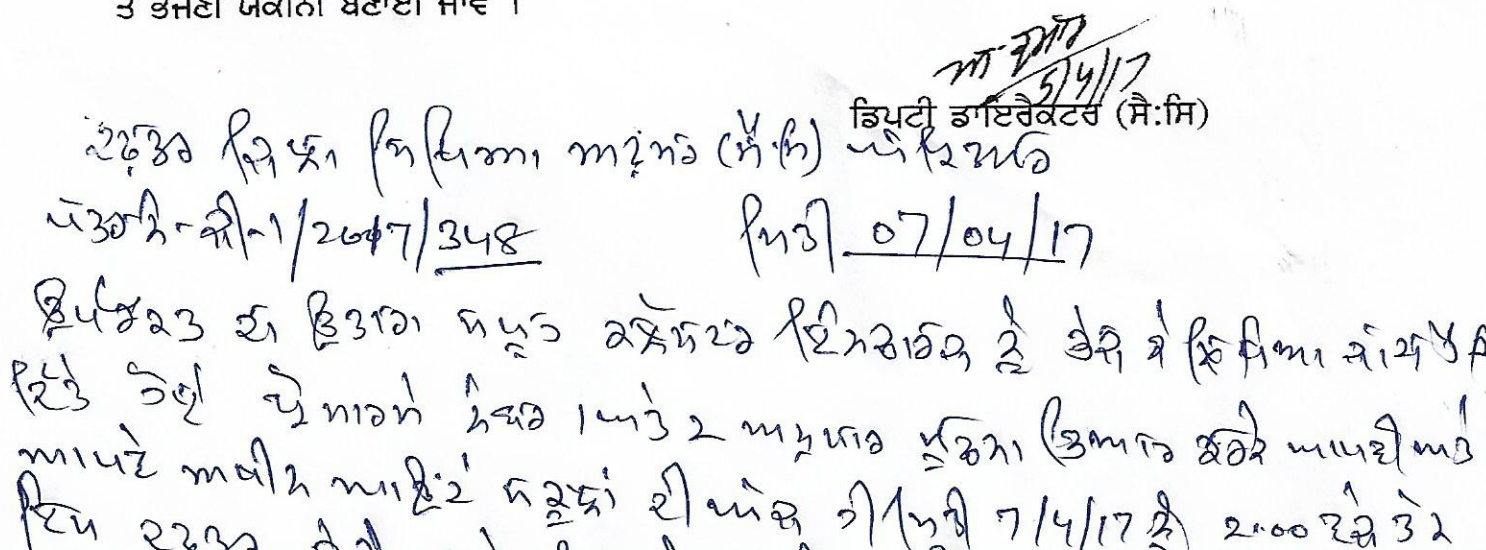 ਤੇ ਭੇਜਣੀ ਯਕੀਨੀ ਬਣਾਈ ਜਾਵੇ ।
5/4/17
ਡਿਪਟੀ ਡਾਇਰੈਕਟਰ (ਸੈ:ਸਿ)
ਦਫਤਰ ਜ਼ਿਲ੍ਹਾ ਸਿੱਖਿਆ ਅਫਸਰ (ਸੈ:ਸਿ) ਅੰਮ੍ਰਿਤਸਰ
/2017/348 ਮਿਤੀ 07/04/17
ਉਪਰੋਕਤ ਦਾ ਉਤਾਰਾ ਸਮੂਹ ਕਲੱਸਟਰ ਇੰਚਾਰਜ ਨੂੰ ਭੇਜ ਕੇ ਲਿਖਿਆ ਜਾਂਦਾ ਹੈ ਕਿ
ਦਿੱਤੇ ਹੋਏ ਪ੍ਰੋਫਾਰਮੇ ਨੰਬਰ 1 ਅਤੇ 2 ਅਨੁਸਾਰ ਸੂਚਨਾ ਤਿਆਰ ਕਰਕੇ ਆਪਣੀ ਅਤੇ
ਆਪਣੇ ਅਧੀਨ ਆਉਂਦੇ ਸਕੂਲਾਂ ਦੀ ਅੱਜ ਹੀ ਮਿਤੀ 7/4/17 ਨੂੰ 2:00 ਵਜੇ ਤੱਕ
ਇਸ ਦਫਤਰ